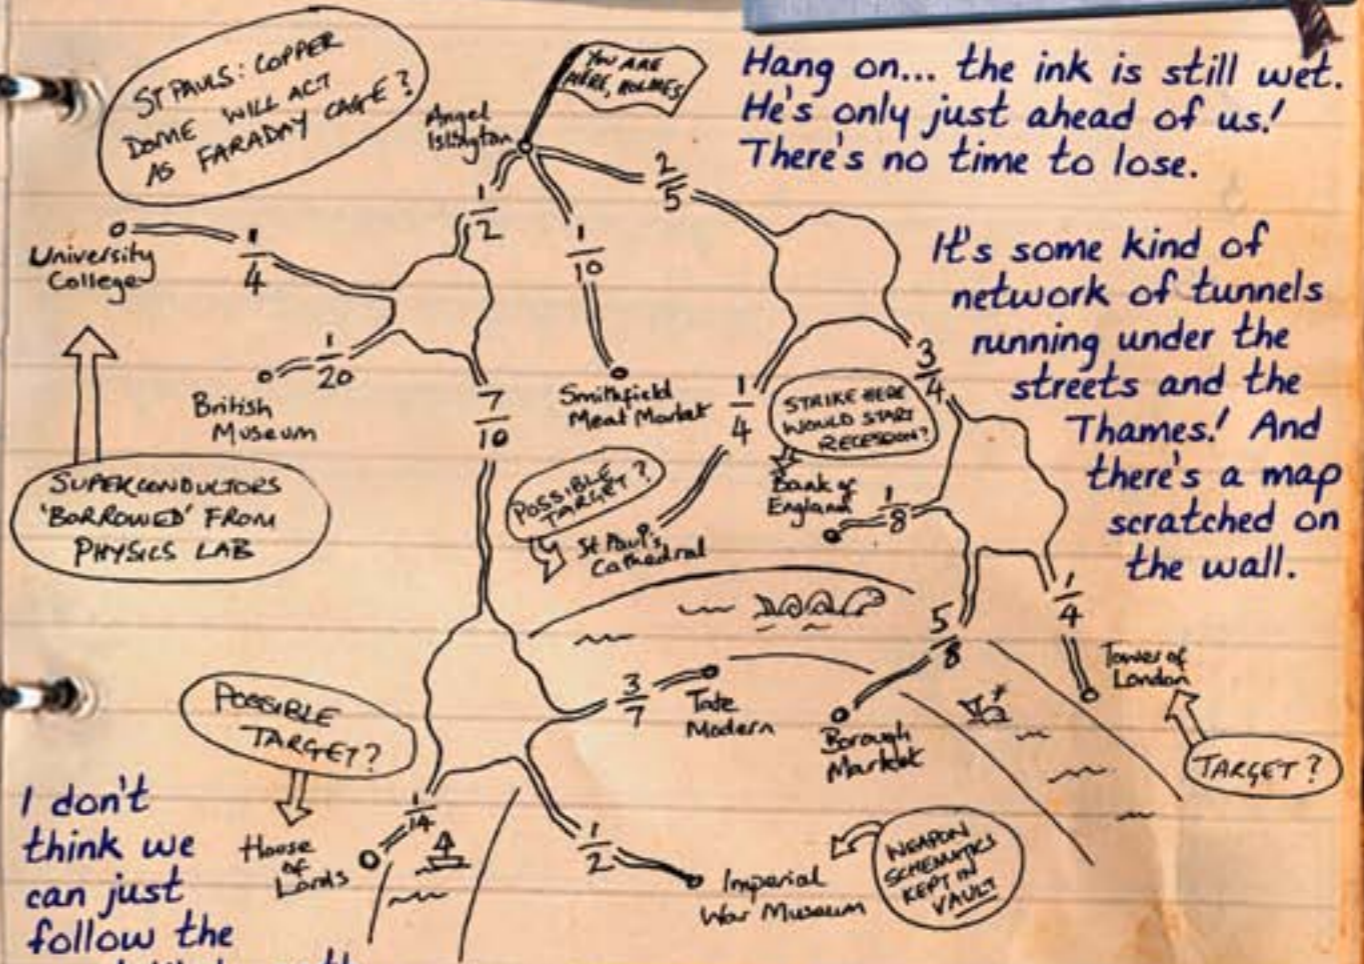 ST PAULS: COPPER
DOME WILL ACT
AS FARADAY CAGE?
YOU ARE
HERE, HOLMES
Hang on... the ink is still wet.
He's only just ahead of us!
There's no time to lose.
Angel
Islington
1/2
1/10
2/5
It's some kind of
network of tunnels
running under the
streets and the
Thames! And
there's a map
scratched on
the wall.
University
College
1/4
British
Museum
1/20
7/10
Smithfield
Meat Market
1/4
3/4
STRIKE HERE
WOULD START
RECESSION?
Bank of
England
1/8
SUPERCONDUCTORS
'BORROWED' FROM
PHYSICS LAB
POSSIBLE
TARGET?
St Paul's
Cathedral
5/8
1/4
Tower of
London
TARGET?
3/7
Tate
Modern
Borough
Market
POSSIBLE
TARGET?
1/14
House
of
Lords
1/2
Imperial
War Museum
WEAPON
SCHEMATICS
KEPT IN
VAULT
I don't
think we
can just
follow the